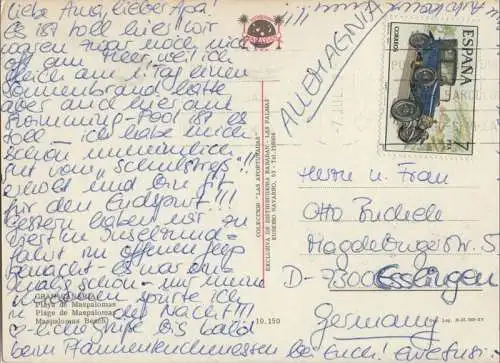 Liebe Ama, lieber Apa!
Es ist toll hier, wir
waren zwar noch nicht
oft am Meer, weil ich
gleich am 1. Tag einen
Sonnenbrand hatte
aber auch hier am
Swimming-Pool ist es
toll - ich habe mich
schon
auf vom "Schulstreß"
erholt und bin fit
für den Endspurt!!!
Gestern haben wir zu
viert 'ne Inselrund-
fahrt im offenen Jeep
gemacht - es war ein-
malig schön - nur meinen
spürte ich
in der Nacht!!!
bis bald
beim Pfannenkuchenessen bei Euch!
GRAN CANARIA
Playa de Maspalomas
Plage de Maspalomas
Maspalomas Beach
10.150
COLECCION "LAS AFORTUNADAS"
EXCLUSIVA DE DISTRIBUIDORA
EUSEBIO NAVARRO, 53 - LAS PALMAS
ALLEMAGNIA
CORREOS
ESPAÑA
7
PTA
Herrn u. Frau
Otto Buchele
Magdeburgerstr. 5
D-7300 Esslingen
Germany